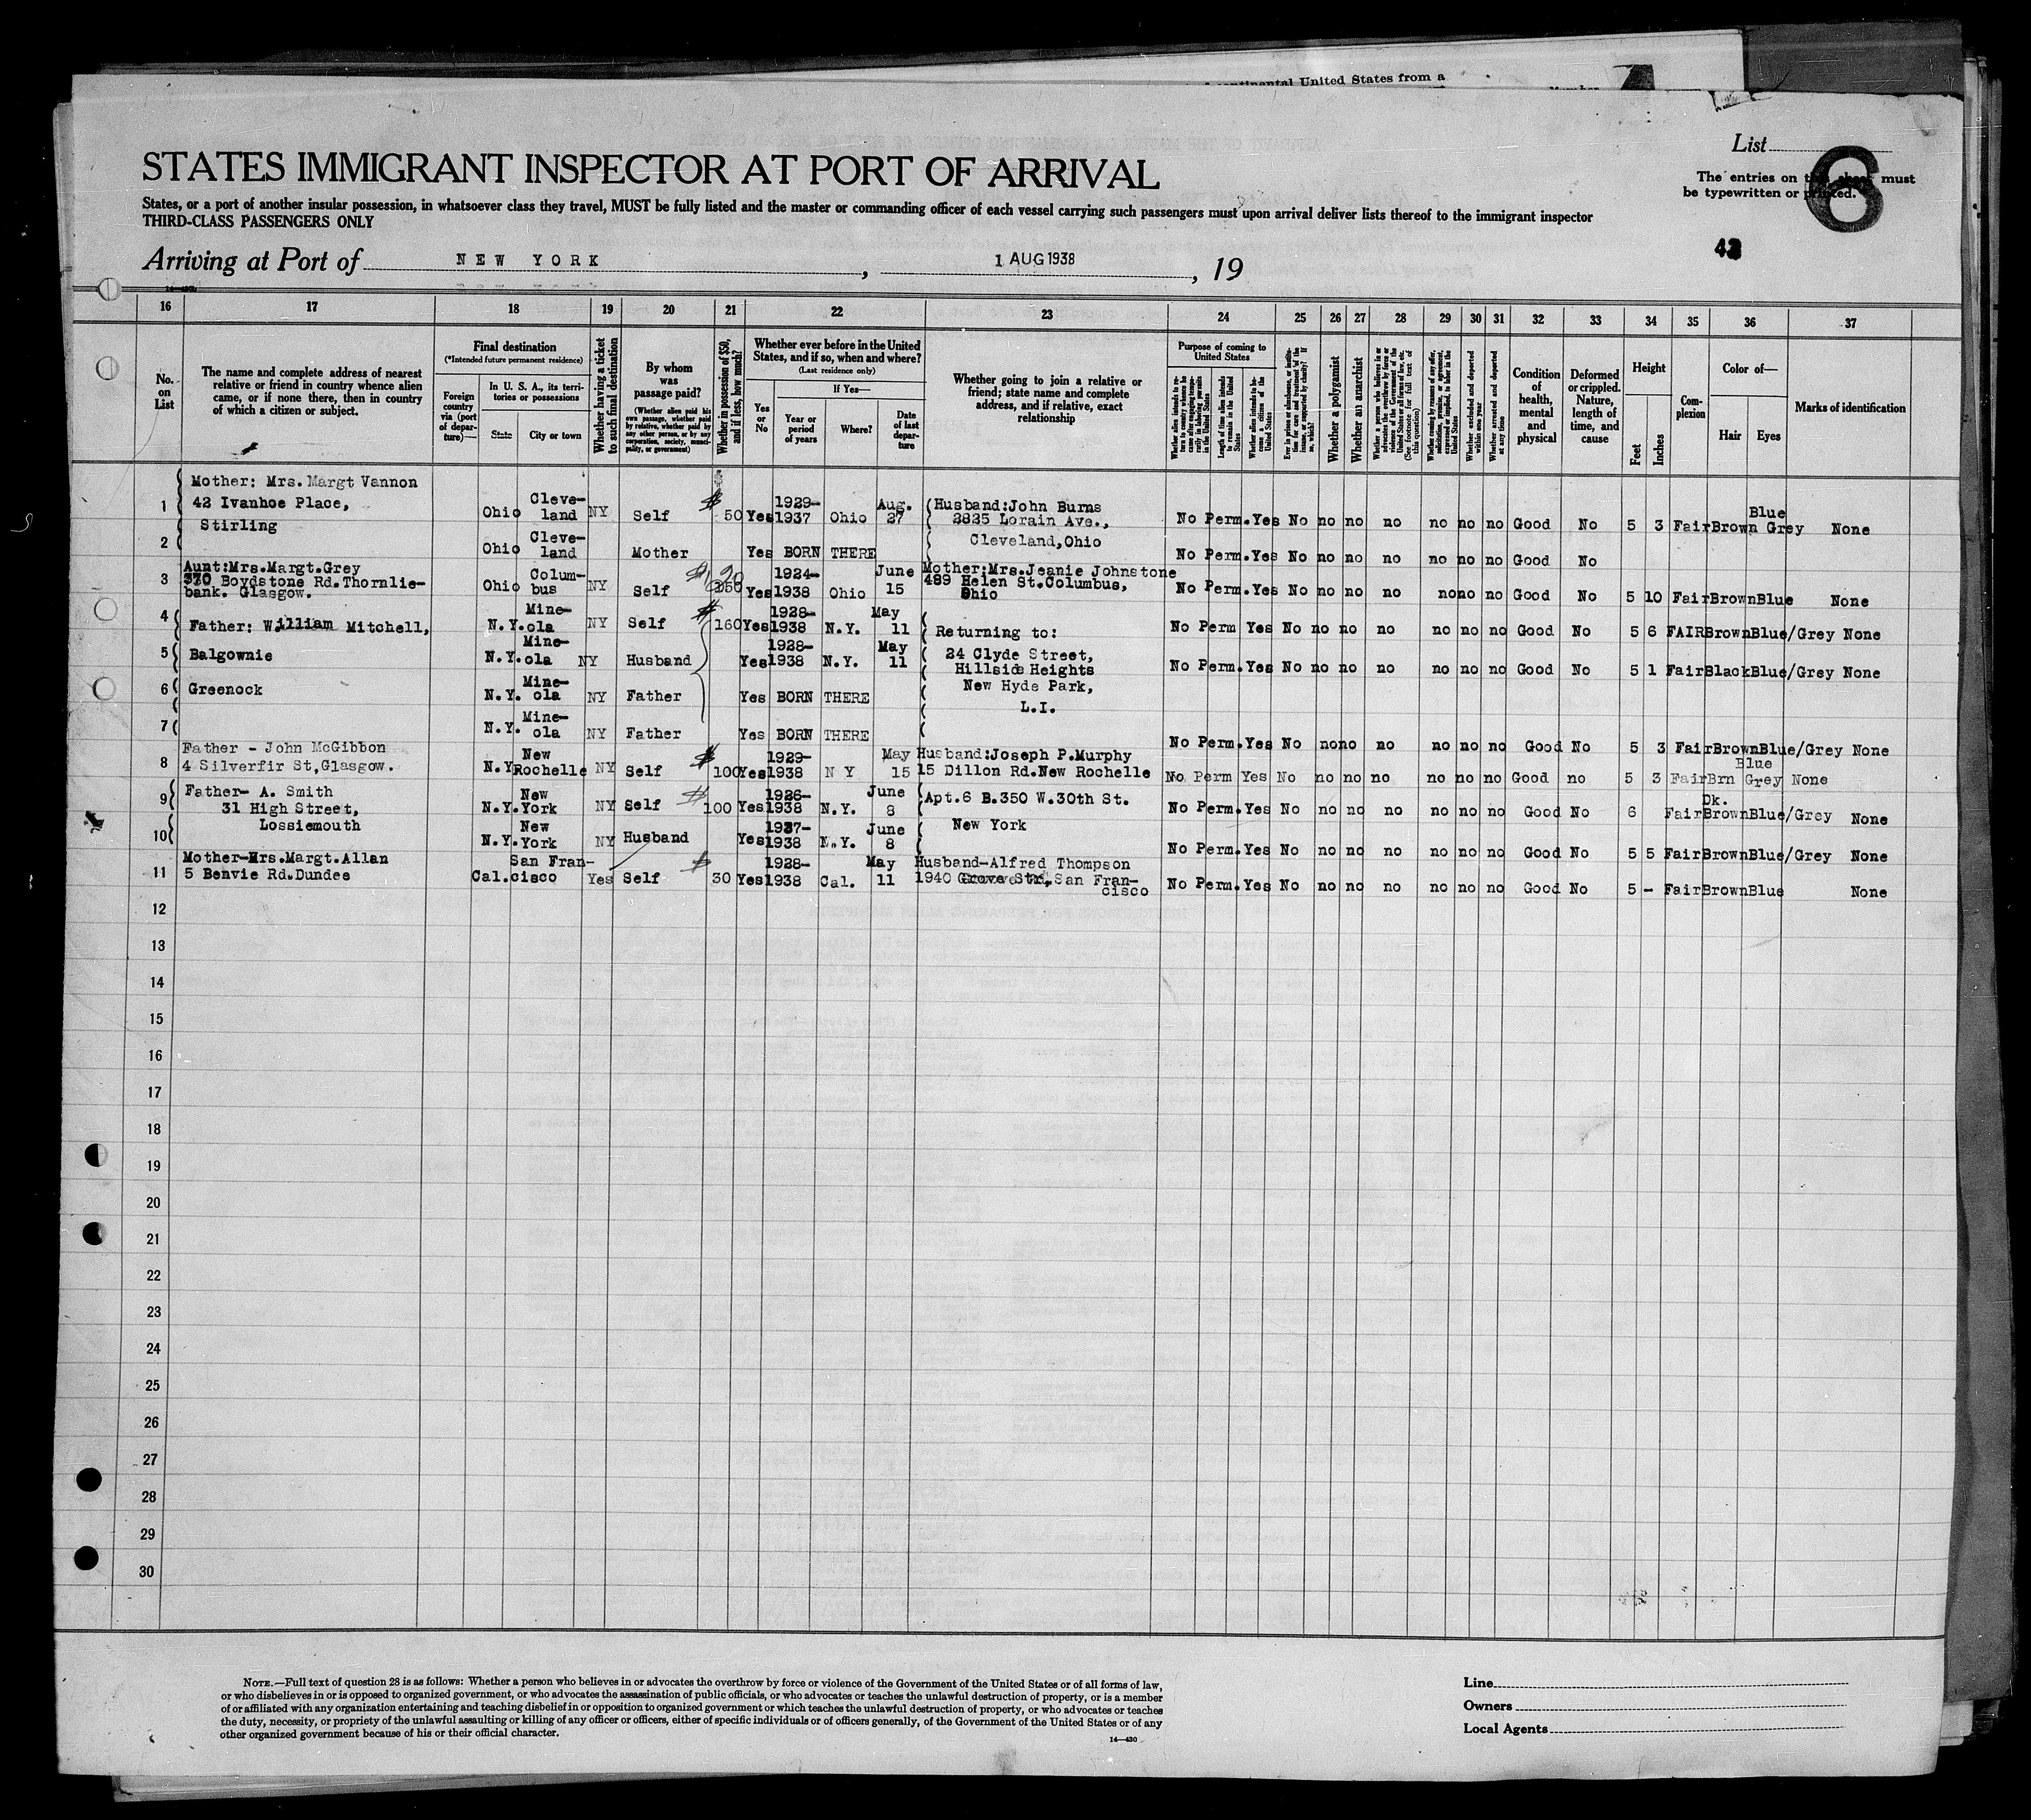 continental United States from a
List
6
The entries on this sheet must
be typewritten or printed.
43
STATES IMMIGRANT INSPECTOR AT PORT OF ARRIVAL
States, or a port of another insular possession, in whatsoever class they travel, MUST be fully listed and the master or commanding officer of each vessel carrying such passengers must upon arrival deliver lists thereof to the immigrant inspector
THIRD-CLASS PASSENGERS ONLY
Arriving at Port of NEW YORK, 1 AUG 1938, 19
16 17 18 19 20 21 22 23 24 25 26 27 28 29 30 31 32 33 34 35 36 37
No. on List
The name and complete address of nearest relative or friend in country whence alien came, or if none there, then in country of which a citizen or subject.
Final destination
(*Intended future permanent residence)
Foreign country via (port of departure)—
In U. S. A., its territories or possessions
State
City or town
Whether having a ticket to such final destination
By whom was passage paid?
(Whether alien paid his own passage, whether paid by relative, whether paid by any other person, or by any corporation, society, municipality, or government)
Whether in possession of $50, and if less, how much?
Whether ever before in the United States, and if so, when and where?
(Last residence only)
Yes or No
If Yes—
Year or period of years
Where?
Date of last departure
Whether going to join a relative or friend; state name and complete address, and if relative, exact relationship
Purpose of coming to United States
Whether alien intends to return to country whence he came after engaging temporarily in laboring pursuits in the United States
Length of time alien intends to remain in the United States
Whether alien intends to become a citizen of the United States
Ever in prison or almshouse, or institution for care and treatment of the insane, or supported by charity? If so, which?
Whether a polygamist
Whether an anarchist
Whether a person who believes in or advocates the overthrow by force or violence of the Government of the United States or all forms of law, etc. (See footnote for full text of this question)
Whether coming by reason of any offer, solicitation, promise, or agreement, expressed or implied, to labor in the United States
Whether excluded and deported within one year
Whether arrested and deported at any time
Condition of health, mental and physical
Deformed or crippled. Nature, length of time, and cause
Height
Feet
Inches
Complexion
Color of—
Hair
Eyes
Marks of identification
Mother: Mrs. Margt Vannon
1 42 Ivanhoe Place, Ohio Cleveland NY Self $ 50 Yes 1929-1937 Ohio Aug. 27 Husband:John Burns 2825 Lorain Ave., No Perm. Yes No no no no no no no Good No 5 3 Fair Brown Blue Grey None
Stirling
2 Ohio Cleveland Mother Yes BORN THERE Cleveland,Ohio No Perm. Yes No no no no no no no Good No
Aunt:Mrs.Margt.Grey
3 370 Boydstone Rd.Thornliebank. Glasgow. Ohio Columbus NY Self $ Yes 1924-1938 Ohio June 15 Mother:Mrs.Jeanie Johnstone 489 Helen St.Columbus, Ohio No Perm. Yes No no no no no no no Good No 5 10 Fair Brown Blue None
4 Father: William Mitchell, N.Y. Mineola NY Self $ 160 Yes 1928-1938 N.Y. May 11 Returning to: No Perm Yes No no no no no no no Good No 5 6 FAIR Brown Blue/Grey None
5 Balgownie N.Y. Mineola NY Husband Yes 1928-1938 N.Y. May 11 24 Clyde Street, Hillside Heights No Perm. Yes No no no no no no no Good No 5 1 Fair Black Blue/Grey None
6 Greenock N.Y. Mineola NY Father Yes BORN THERE New Hyde Park,
L.I.
7 N.Y. Mineola NY Father Yes BORN THERE No Perm. Yes No no no no no no no Good No 5 3 Fair Brown Blue/Grey None
Father - John McGibbon
8 4 Silverfir St,Glasgow. N.Y New Rochelle NY Self $ 100 Yes 1929-1938 N Y May 15 Husband:Joseph P.Murphy 15 Dillon Rd.New Rochelle No Perm Yes No no no no no no no Good no 5 3 Fair Brn Blue Grey None
9 Father- A. Smith N.Y. New York NY Self $ 100 Yes 1926-1938 N.Y. June 8 Apt.6 B.350 W.30th St. No Perm. Yes No no no no no no no Good No 6 Fair Dk. Brown Blue/Grey None
31 High Street,
Lossiemouth
10 N.Y. New York NY Husband Yes 1937-1938 N.Y. June 8 New York No Perm. Yes No no no no no no no Good No 5 5 Fair Brown Blue/Grey None
Mother-Mrs.Margt.Allan
11 5 Benvie Rd.Dundee Cal. San Francisco Yes Self $ 30 Yes 1928-1938 Cal. May 11 Husband-Alfred Thompson 1940 Grove Str, San Francisco No Perm. Yes No no no no no no no Good No 5 - Fair Brown Blue None
12
13
14
15
16
17
18
19
20
21
22
23
24
25
26
27
28
29
30
NOTE.—Full text of question 28 is as follows: Whether a person who believes in or advocates the overthrow by force or violence of the Government of the United States or of all forms of law,
or who disbelieves in or is opposed to organized government, or who advocates the assassination of public officials, or who advocates or teaches the unlawful destruction of property, or is a member
of or affiliated with any organization entertaining and teaching disbelief in or opposition to organized government or which teaches the unlawful destruction of property, or who advocates or teaches
the duty, necessity, or propriety of the unlawful assaulting or killing of any officer or officers, either of specific individuals or of officers generally, of the Government of the United States or of any
other organized government because of his or their official character.
14—430
Line
Owners
Local Agents